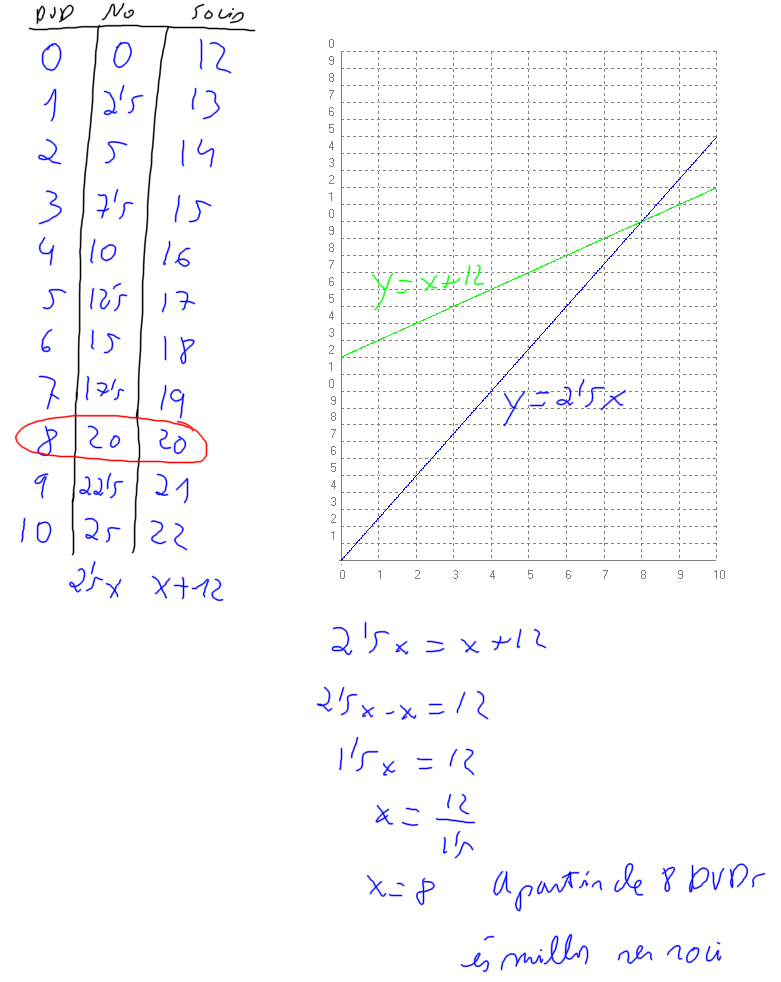 DVD No SOCIS
0 0 12
1 2'5 13
2 5 14
3 7'5 15
4 10 16
5 12'5 17
6 15 18
7 17'5 19
8 20 20
9 22'5 21
10 25 22
2'5x x+12
0
9
8
7
6
5
4
3
2
1
0
9
8
7
6
5
4
3
2
1
0
9
8
7
6
5
4
3
2
1
0 1 2 3 4 5 6 7 8 9 10
y=x+12
y=2'5x
2'5x = x+12
2'5x-x=12
1'5x = 12
x= 12/1'5
x=8 A partir de 8 DVDs
és millor ser soci